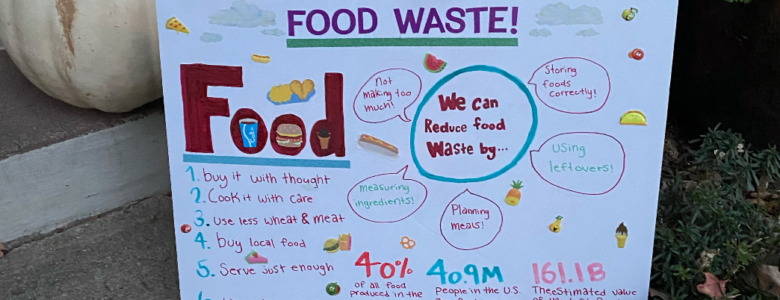 FOOD WASTE!
Food
1. buy it with thought
2. Cook it with care
3. use less wheat & meat
4. buy local food
5. Serve just enough
Not
making too
much!
We Can
Reduce food
Waste by...
Storing
foods
correctly!
Using
leftovers!
Measuring
ingredients!
Planning
meals!
40%
of all food
produced in the
40.9M
People in the U.S.
161.1B
The estimated value